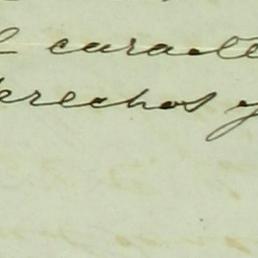 el caracte
derechos y